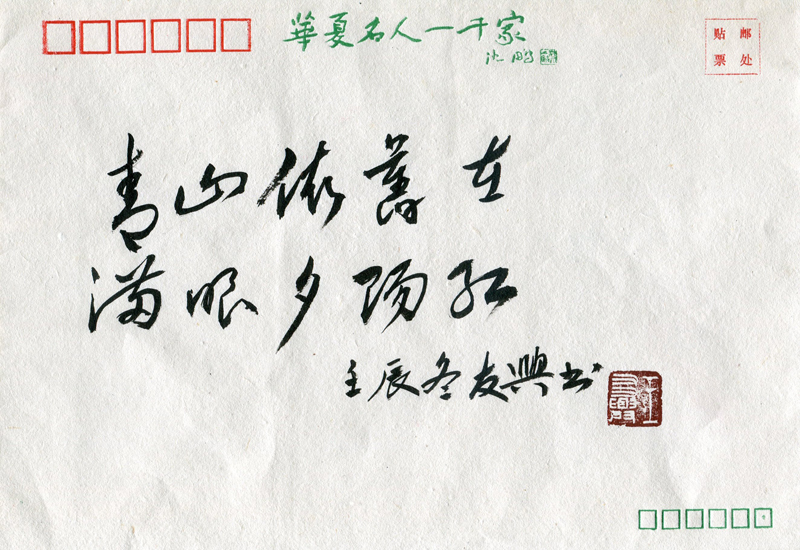 華夏名人一千家
沈鹏
贴邮
票处
青山依舊在
满眼夕阳红
壬辰冬友興书